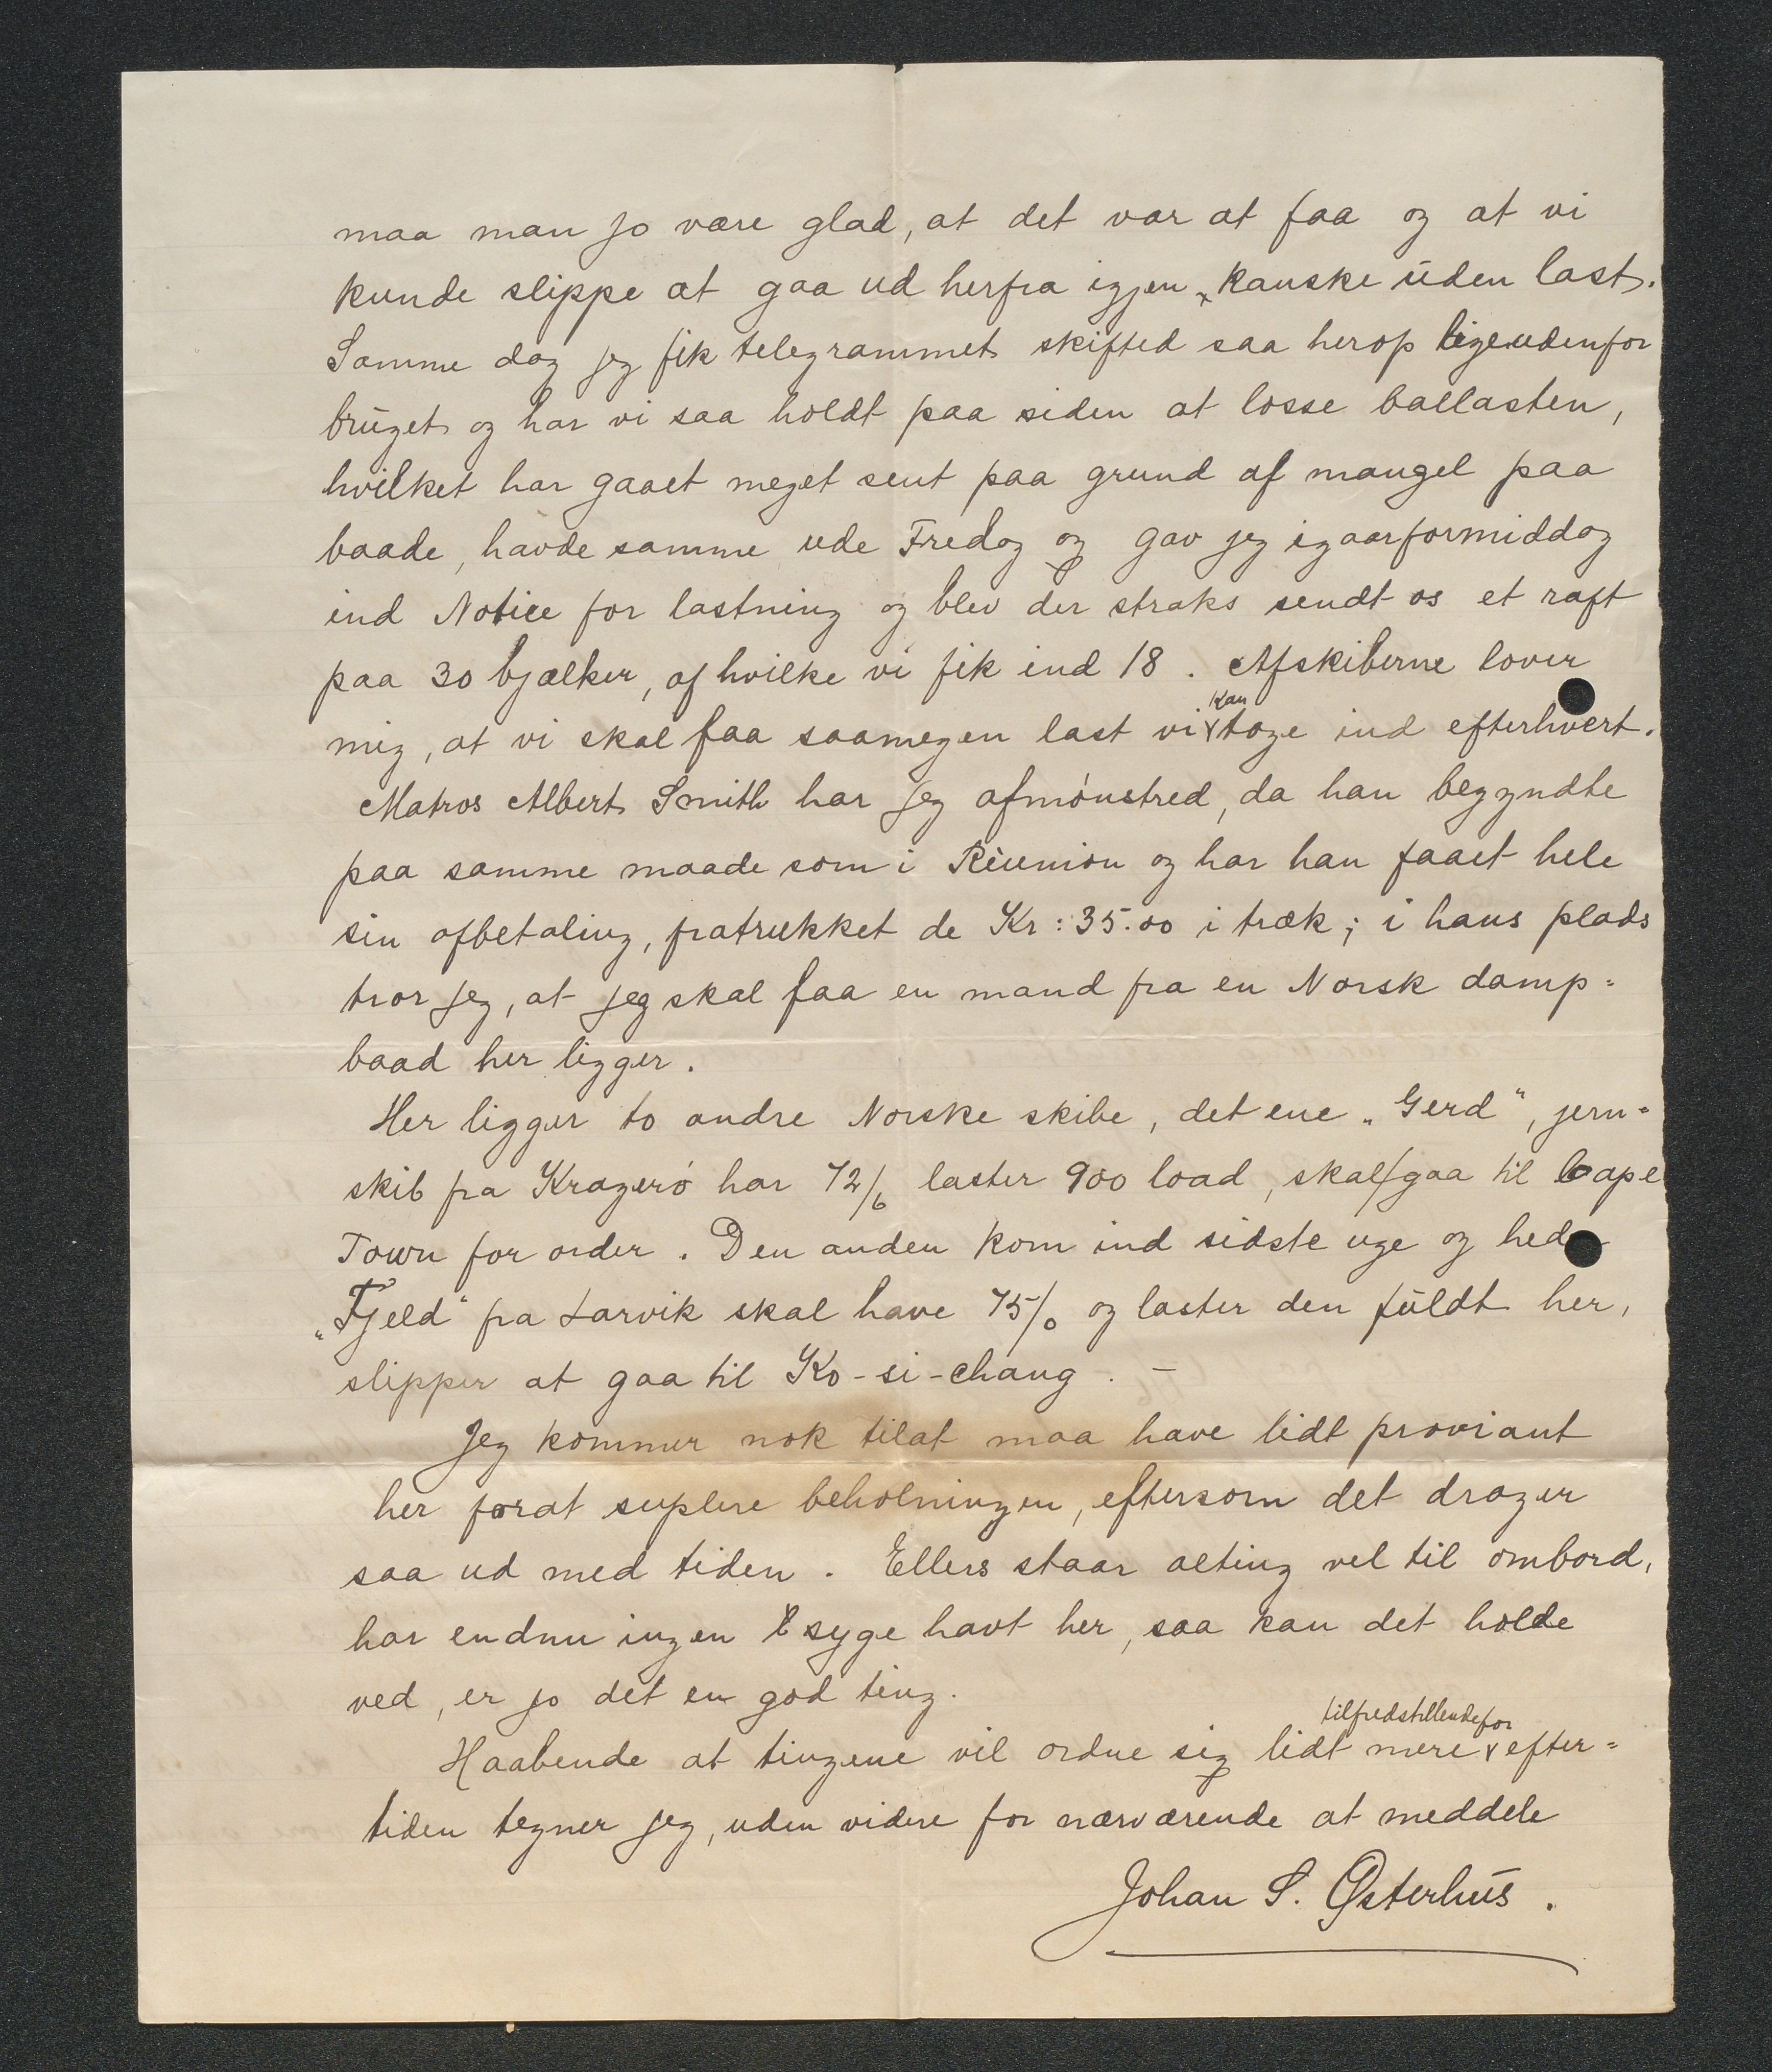 maa man jo være glad, at det var at faa og at vi
kunde slippe at gaa ud herfra igjen, kanske uden last.
Samme dag jeg fik telegrammet skifted saa herop ligeudenfor
bruget og har vi saa holdt paa siden at losse ballasten,
hvilket har gaaet meget sent paa grund af mangel paa
baade, havde samme ude Fredag og gav jeg igaarformiddag
ind Notice for lastning og blev der straks sendt os et raft
paa 30 bjælker, af hvilke vi fik ind 18. Afskiberne lover
mig, at vi skal faa saamegen last vi kan tage ind efterhvert.
Matros Albert Smith har jeg afmønstred, da han begyndte
paa samme maade som i Réunion og har han faaet hele
sin afbetaling, fratrukket de Kr: 35.00 i træk; i hans plads
tror jeg, at jeg skal faa en mand fra en Norsk damp-
baad her ligger.
Her ligger to andre Norske skibe, det ene "Gerd", jern-
skib fra Kragerø har 72/6 laster 900 load, skal gaa til Cape
Town for order. Den anden kom ind sidste uge og heder
"Fjeld" fra Larvik skal have 75/0 og laster den fuldt her,
slipper at gaa til Ko-si-chang. —
Jeg kommer nok tilat maa have lidt proviant
her forat suplere beholningen, eftersom det drager
saa ud med tiden. Ellers staar alting vel til ombord,
har endnu ingen syge havt her, saa kan det holde
ved, er jo det en god ting.
Haabende at tingene vil ordne sig lidt mere tilfredstillende for efter-
tiden tegner jeg, uden videre for nærværende at meddele
Johan S. Østerhus.